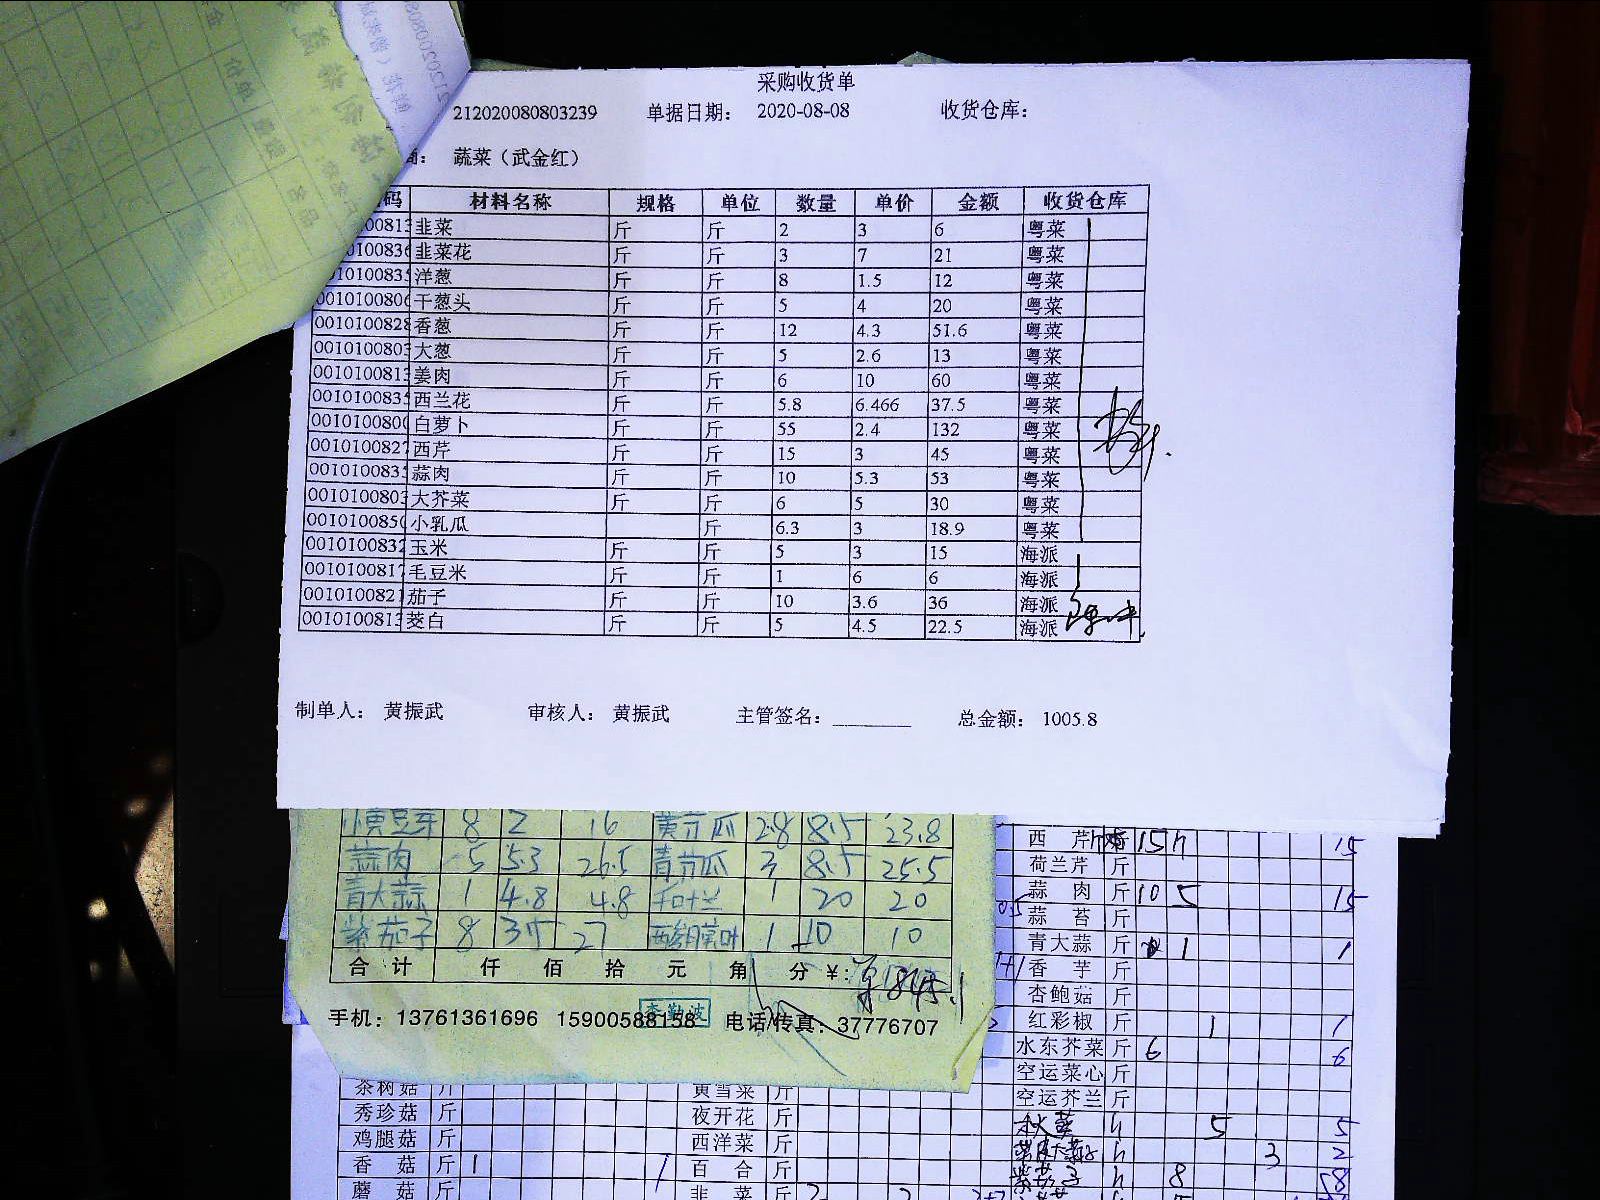 采购收货单
212020080803239 单据日期： 2020-08-08 收货仓库：
商： 蔬菜（武金红）
码 材料名称 规格 单位 数量 单价 金额 收货仓库
00813 韭菜 斤 斤 2 3 6 粤菜
0100836 韭菜花 斤 斤 3 7 21 粤菜
010100835 洋葱 斤 斤 8 1.5 12 粤菜
0010100806 干葱头 斤 斤 5 4 20 粤菜
0010100828 香葱 斤 斤 12 4.3 51.6 粤菜
0010100803 大葱 斤 斤 5 2.6 13 粤菜
0010100813 姜肉 斤 斤 6 10 60 粤菜
0010100835 西兰花 斤 斤 5.8 6.466 37.5 粤菜
001010080 白萝卜 斤 斤 55 2.4 132 粤菜
0010100827 西芹 斤 斤 15 3 45 粤菜
001010083 蒜肉 斤 斤 10 5.3 53 粤菜
0010100803 大芥菜 斤 斤 6 5 30 粤菜
001010085 小乳瓜 斤 6.3 3 18.9 粤菜
0010100832 玉米 斤 斤 5 3 15 海派
0010100817 毛豆米 斤 斤 1 6 6 海派
0010100821 茄子 斤 斤 10 3.6 36 海派
0010100813 茭白 斤 斤 5 4.5 22.5 海派
制单人： 黄振武 审核人： 黄振武 主管签名：________ 总金额： 1005.8
小黄豆芽 8 2 16 黄节瓜 2.8 8.5 23.8
蒜肉 5 5.3 26.5 青节瓜 3 8.5 25.5
青大蒜 1 4.8 4.8 千叶兰 1 20 20
紫茄子 8 27 1 10 10
合计 仟 佰 拾 元 角 分 ¥: 845.1
手机：13761361696 15900588158 电话/传真：37776707
李勤波
西芹 15 15
荷兰芹 斤
蒜肉 斤 10 5 15
蒜苔 斤
青大蒜 斤 1 1
香芋 斤
杏鲍菇 斤
红彩椒 斤 1 1
水东芥菜 斤 6 6
空运菜心 斤
空运芥兰 斤
5 5
3
8
茶树菇 斤 黄雪菜 斤
秀珍菇 斤 夜开花 斤
鸡腿菇 斤 西洋菜 斤
香菇 斤 1 1 百合 斤
蘑菇 斤 韭菜 斤